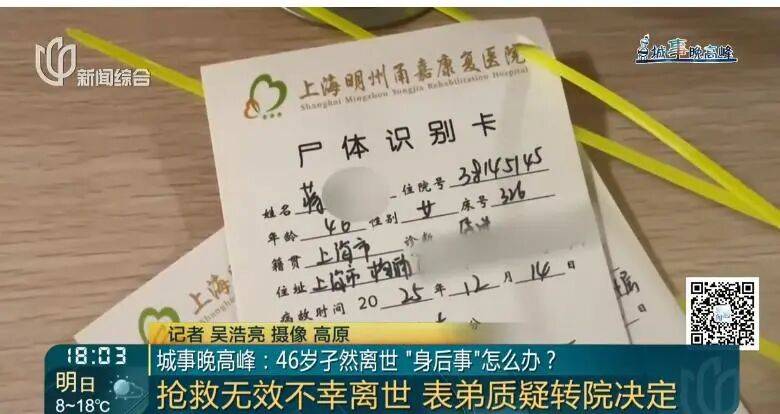 新闻综合
城事晚高峰
上海明州甬嘉康复医院
Rehabilitation Hospital
尸体识别卡
姓名 蒋 住院号 38145145
年龄 46 性别 女 床号 326
籍贯 上海市 诊断
住址 上海市
病故时间 2025年12月14日
记者 吴浩亮 摄像 高原
18:03
城事晚高峰：46岁孑然离世 "身后事"怎么办？
明日
8~18℃
抢救无效不幸离世 表弟质疑转院决定